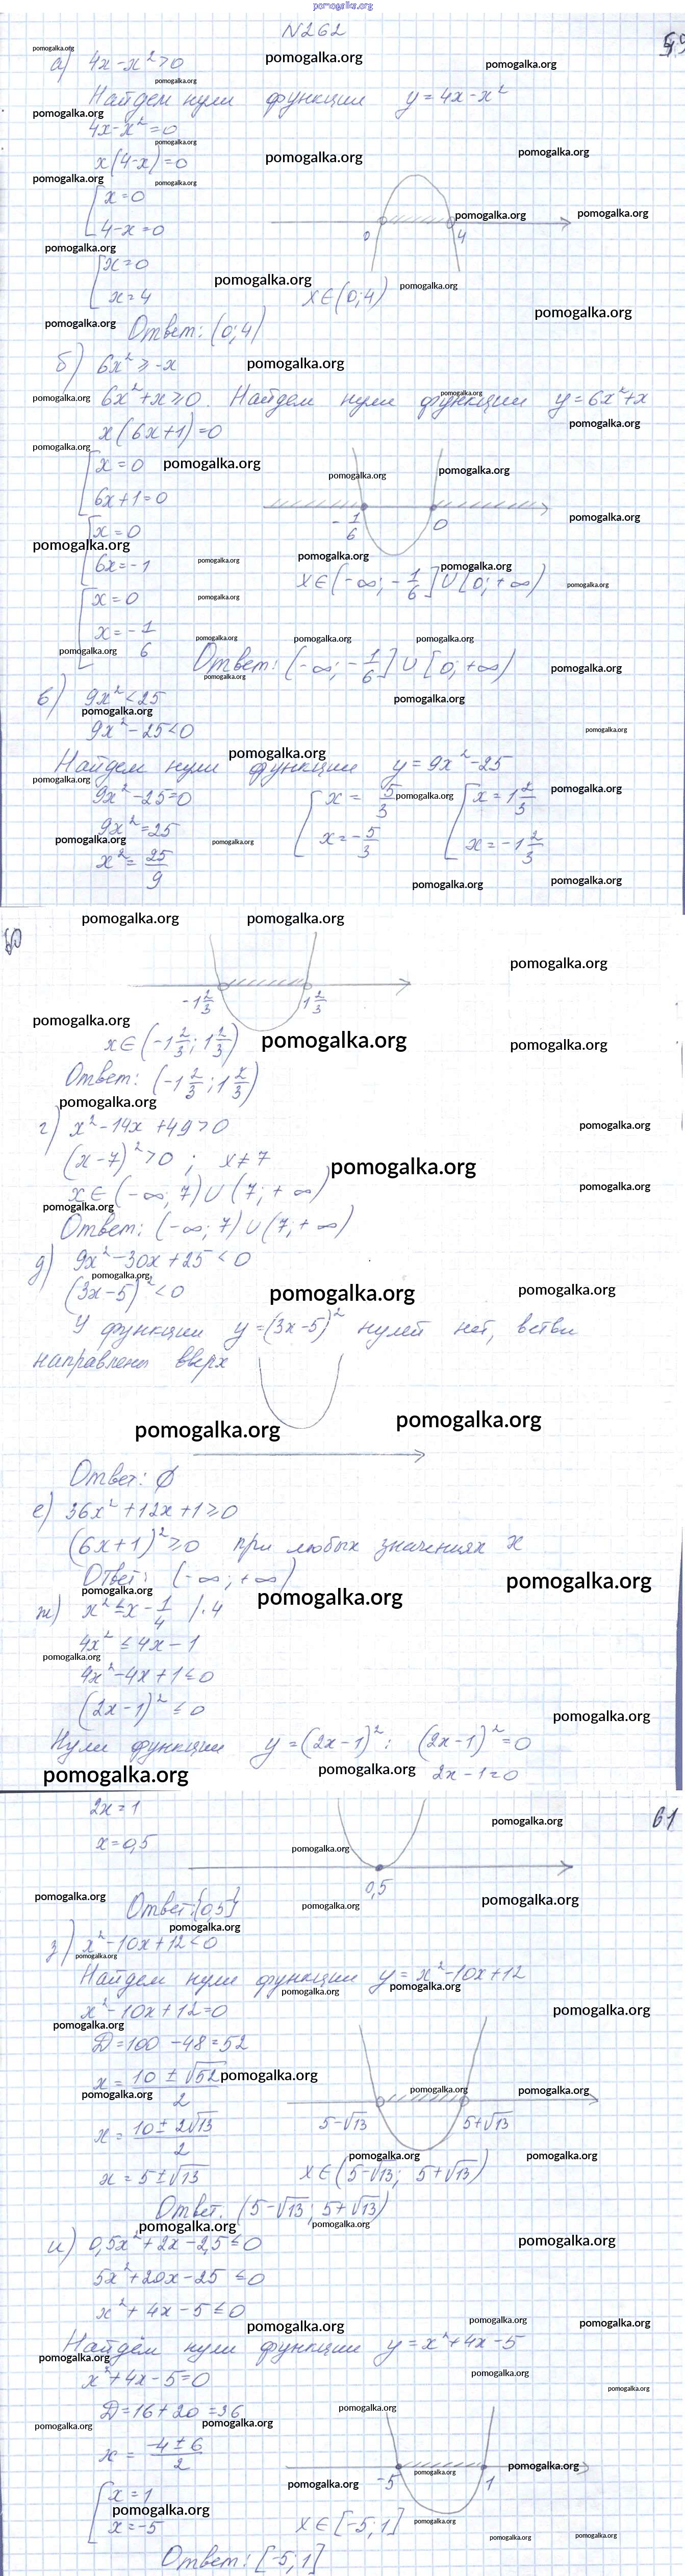 pomogalka.org
N262
59
а) 4x-x²>0
Найдем нули функции y=4x-x²
4x-x²=0
x(4-x)=0
x=0
4-x=0
0 4
x=0
x=4
x∈(0;4)
Ответ: (0;4)
б) 6x²≥-x
6x²+x≥0. Найдем нули функции y=6x²+x
x(6x+1)=0
x=0
6x+1=0
-1/6 0
x=0
6x=-1
x∈(-∞;-1/6]∪[0;+∞)
x=0
x=-1/6
Ответ: (-∞;-1/6]∪[0;+∞)
в) 9x²<25
9x²-25<0
Найдем нули функции y=9x²-25
9x²-25=0 x=5/3 x=1 2/3
9x²=25 x=-5/3 x=-1 2/3
x²=25/9
60
-1 2/3 1 2/3
x∈(-1 2/3;1 2/3)
Ответ: (-1 2/3;1 2/3)
г) x²-14x+49>0
(x-7)²>0; x≠7
x∈(-∞;7)∪(7;+∞)
Ответ: (-∞;7)∪(7;+∞)
д) 9x²-30x+25<0
(3x-5)²<0
У функции y=(3x-5)² нулей нет, ветви
направлены вверх
Ответ: ∅
е) 36x²+12x+1≥0
(6x+1)²≥0 при любых значениях x
Ответ: (-∞;+∞)
ж) x²≤x-1/4 /·4
4x²≤4x-1
4x²-4x+1≤0
(2x-1)²≤0
Нули функции y=(2x-1)²: (2x-1)²=0
2x-1=0
61
2x=1
x=0,5
0,5
Ответ: {0,5}
з) x²-10x+12<0
Найдем нули функции y=x²-10x+12
x²-10x+12=0
D=100-48=52
x=(10±√52)/2
x=(10±2√13)/2
5-√13 5+√13
x=5±√13
x∈(5-√13; 5+√13)
Ответ. (5-√13; 5+√13)
и) 0,5x²+2x-2,5≤0
5x²+20x-25≤0
x²+4x-5≤0
Найдём нули функции y=x²+4x-5
x²+4x-5=0
D=16+20=36
x=(-4±6)/2
-5 1
x=1
x=-5
x∈[-5;1]
Ответ: [-5;1]